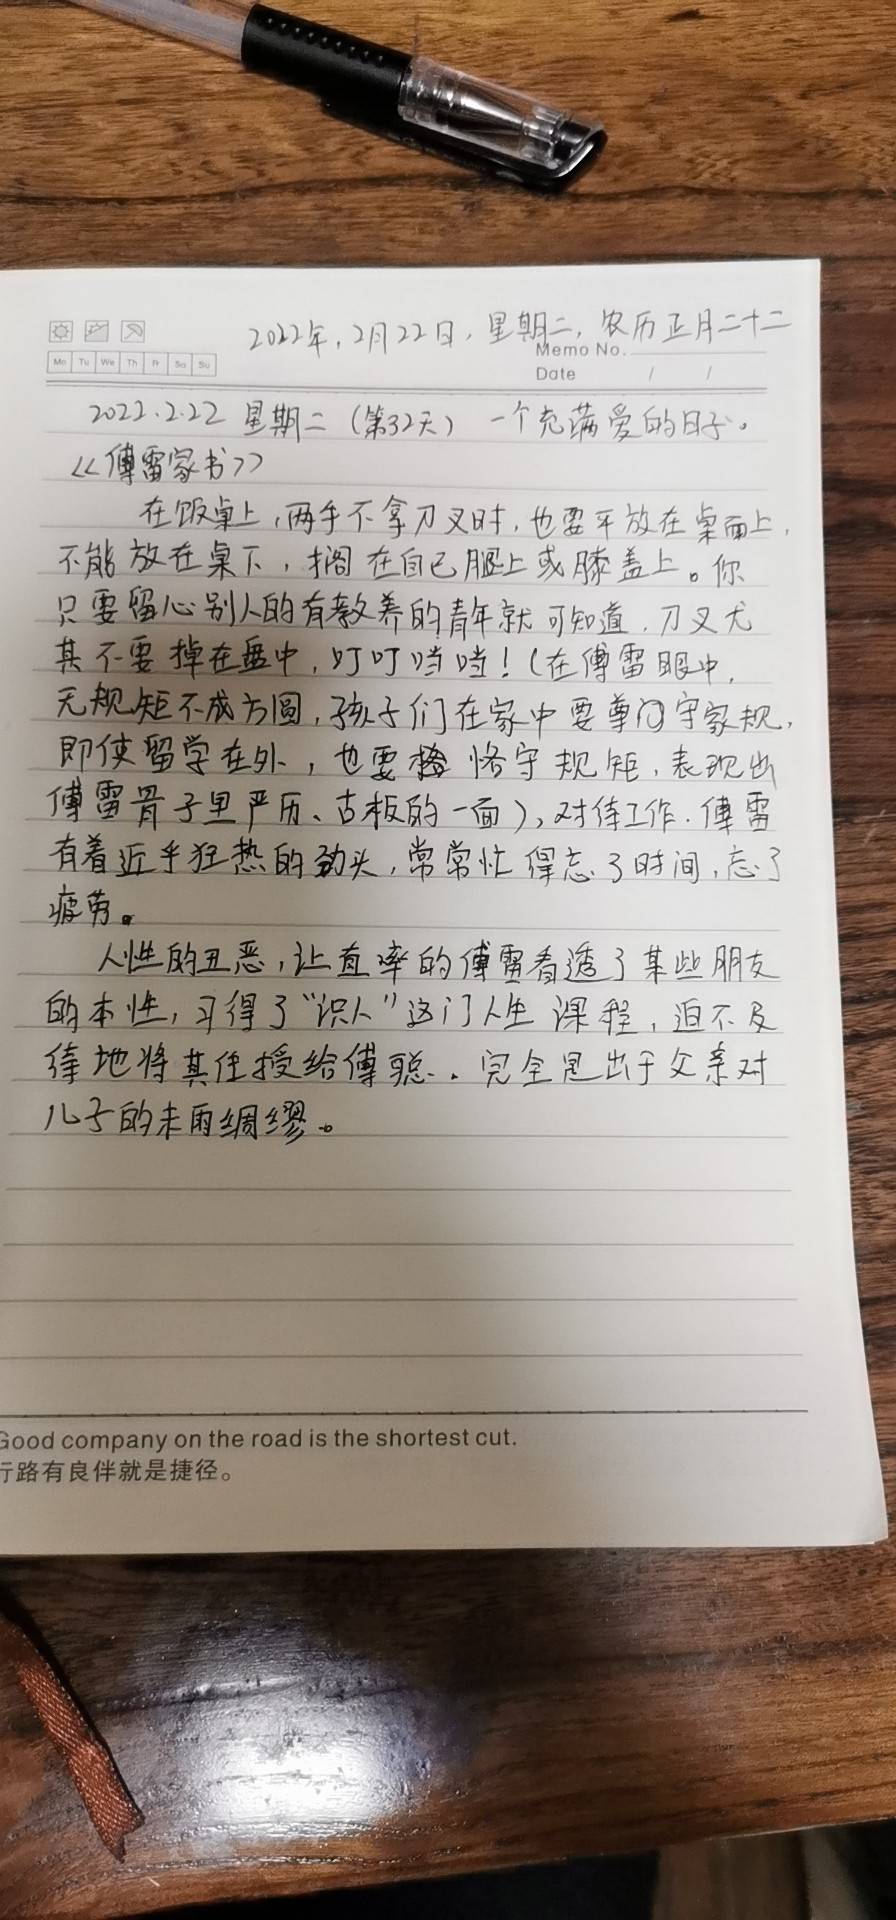 2022年,2月22日,星期二,农历正月二十二
Memo No.
Mo Tu We Th Fr Sa Su
Date / /
2022.2.22 星期二(第32天) 一个充满爱的日子。
<<傅雷家书>>
在饭桌上,两手不拿刀叉时,也要平放在桌面上,
不能放在桌下,搁在自己腿上或膝盖上。你
只要留心别人的有教养的青年就可知道,刀叉尤
其不要掉在盘中,叮叮当当!(在傅雷眼中,
无规矩不成方圆,孩子们在家中要尊守家规,
即使留学在外,也要恪守规矩,表现出
傅雷骨子里严历、古板的一面),对待工作.傅雷
有着近乎狂热的劲头,常常忙得忘了时间,忘了
疲劳。
人性的丑恶,让直率的傅雷看透了某些朋友
的本性,习得了“识人”这门人生课程,迫不及
待地将其传授给傅聪.。完全是出于父亲对
儿子的未雨绸缪。
Good company on the road is the shortest cut.
行路有良伴就是捷径。